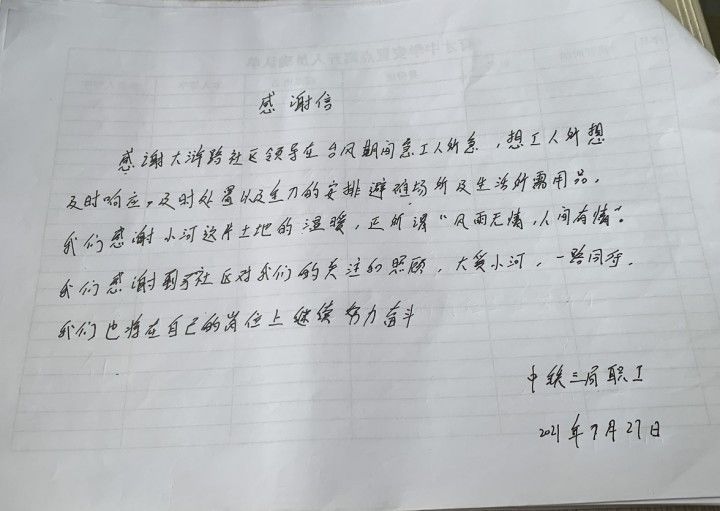 感谢信
感谢大浒路社区领导在台风期间急工人所急，想工人所想
及时响应，及时处置以及全力的安排避难场所及生活所需用品。
我们感谢小河这片土地的温暖，正所谓“风雨无情，人间有情”。
我们感谢社区对我们的关注和照顾，大美小河，一路同行。
我们也将在自己的岗位上继续努力奋斗
中铁三局职工
2021年7月27日